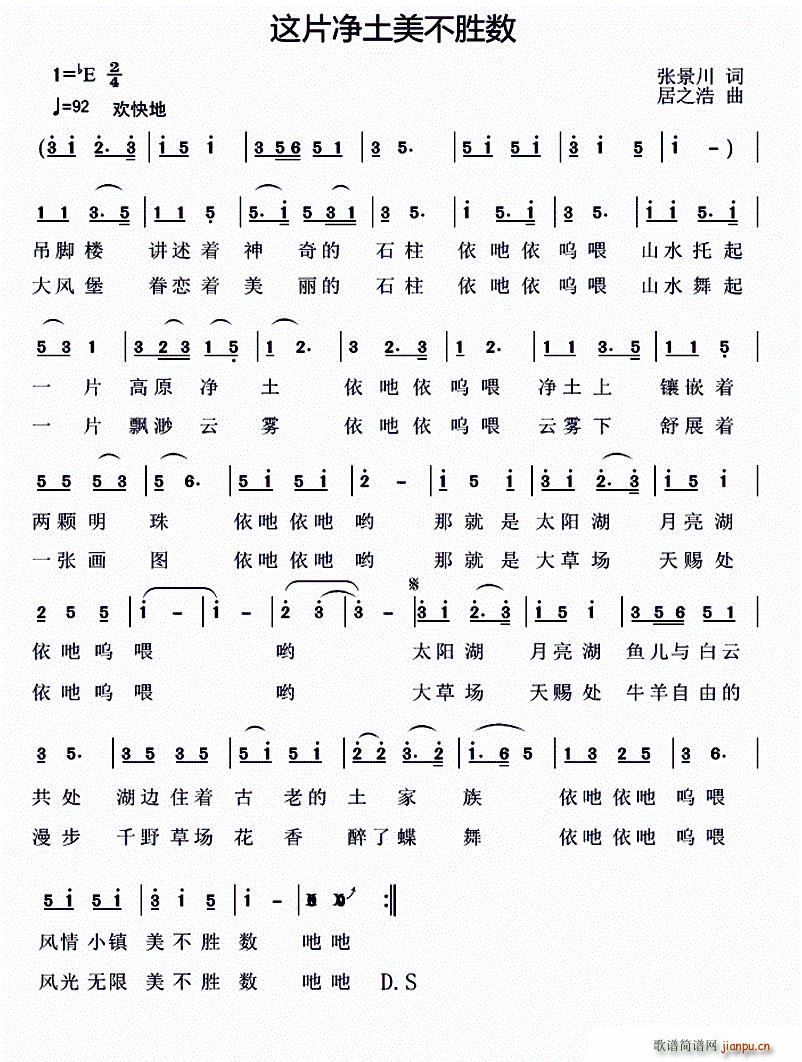 这片净土美不胜数
1=♭E 2/4
张景川 词
♩=92 欢快地
居之浩 曲
(3̇ 1̇ 2̇· 3̇ | 1̇ 5 1̇ | 3 5 6 5 1 | 3 5· | 5 1̇ 5 1̇ | 3̇ 1̇ 5 | 1̇ -) |
1 1 3· 5 | 1 1 5̣ | 5· 1̇ 5 3 1 | 3 5· | 1̇ 5· 1̇ | 3 5· | 5· 1̇ 2̇· 1̇ |
吊脚楼 讲述着 神 奇的 石柱 依吔依呜喂 山水托起
大风堡 眷恋着 美 丽的 石柱 依吔依呜喂 山水舞起
5 3 1 | 3 2 3 1 5̣ | 1 2· | 3 2· 3 | 1 2· | 1 1 3· 5 | 1 1 5̣ |
一 片 高原 净 土 依吔依呜喂 净土上 镶嵌着
一 片 飘渺 云 雾 依吔依呜喂 云雾下 舒展着
5 5 5 3 | 5 6· | 1̇ 5 1̇ 5 | 2̇ - | 1̇ 5 1̇ | 3̇ 1̇ 2̇· 3̇ | 1̇ 5 1̇ |
两颗明 珠 依吔依吔哟 那就是太阳湖 月亮湖
一张画 图 依吔依吔哟 那就是大草场 天赐处
2 5 5 | 1̇ - | 1̇ - | 2̇ 3̇ | 2̇ - | 3̇ 1̇ 2̇· 3̇ | 1̇ 5 1̇ | 3 5 6 5 1 |
依吔呜喂 哟 太阳湖 月亮湖 鱼儿与白云
依吔呜喂 哟 大草场 天赐处 牛羊自由的
3 5· | 3 5 3 5 | 5 1̇ 5 1̇ | 2̇ 2̇ 3̇· 2̇ | 1̇· 6 5 | 1 3 2 5 | 3 6· |
共处 湖边住着 古 老的 土 家 族 依吔依吔 呜喂
漫步 千野草场 花 香 醉了蝶 舞 依吔依吔 呜喂
5 1̇ 5 1̇ | 3̇ 1̇ 5 | 1̇ - | X X :‖
风情小镇 美不胜 数 吔吔
风光无限 美不胜 数 吔吔 D.S
歌谱简谱网
jianpu.cn